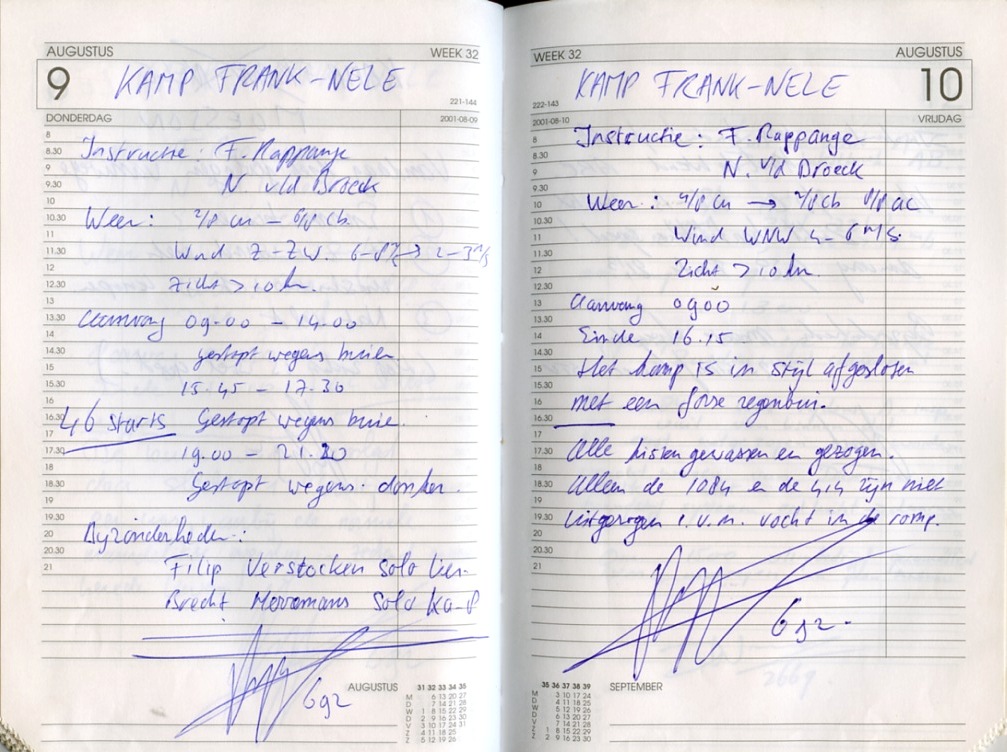 AUGUSTUS WEEK 32
9 KAMP FRANK-NELE
221-144
DONDERDAG 2001-08-09
8
8.30 Instructie: F. Rappange
9
9.30 N v/d Broeck
10
10.30 Weer: 2/8 cu - 6/8 cb
11
11.30 Wind Z-ZW. 6-8 → 2-3 m/s
12
12.30 Zicht > 10 km.
13
13.30 Aanvang 09.00 - 14.00
14
14.30 gestopt wegens buien
15
15.30 15.45 - 17.30
16
16.30 46 starts Gestopt wegens buie.
17
17.30 19.00 - 21.20
18
18.30 Gestopt wegens donker.
19
19.30
20 Byzonderheden:
20.30
21 Filip Verstocken Solo
Brecht Solo Ka-8
692
AUGUSTUS
31 32 33 34 35
M 6 13 20 27
D 7 14 21 28
W 1 8 15 22 29
D 2 9 16 23 30
V 3 10 17 24 31
Z 4 11 18 25
Z 5 12 19 26
WEEK 32 AUGUSTUS
KAMP FRANK-NELE 10
222-143
2001-08-10 VRIJDAG
8 Instructie: F. Rappange
8.30
9 N. v/d Broeck
9.30
10 Weer: 4/8 cu → 7/8 cb 8/8 ac
10.30
11 Wind WNW 4-6 m/s.
11.30
12 Zicht > 10 km.
12.30
13 Aanvang 0900
13.30
14 Einde 16.15
14.30
15 Het kamp is in stijl afgesloten
15.30
16 met een forse regenbui.
16.30
17
17.30 Alle kisten gewassen en gezogen.
18
18.30 Alleen de 1084 en de 414 zijn niet
19
19.30 uitgezogen i.v.m. vocht in de romp.
20
20.30
21
692.
35 36 37 38 39
M 3 10 17 24
D 4 11 18 25
W 5 12 19 26
D 6 13 20 27
V 7 14 21 28
Z 1 8 15 22 29
Z 2 9 16 23 30
SEPTEMBER